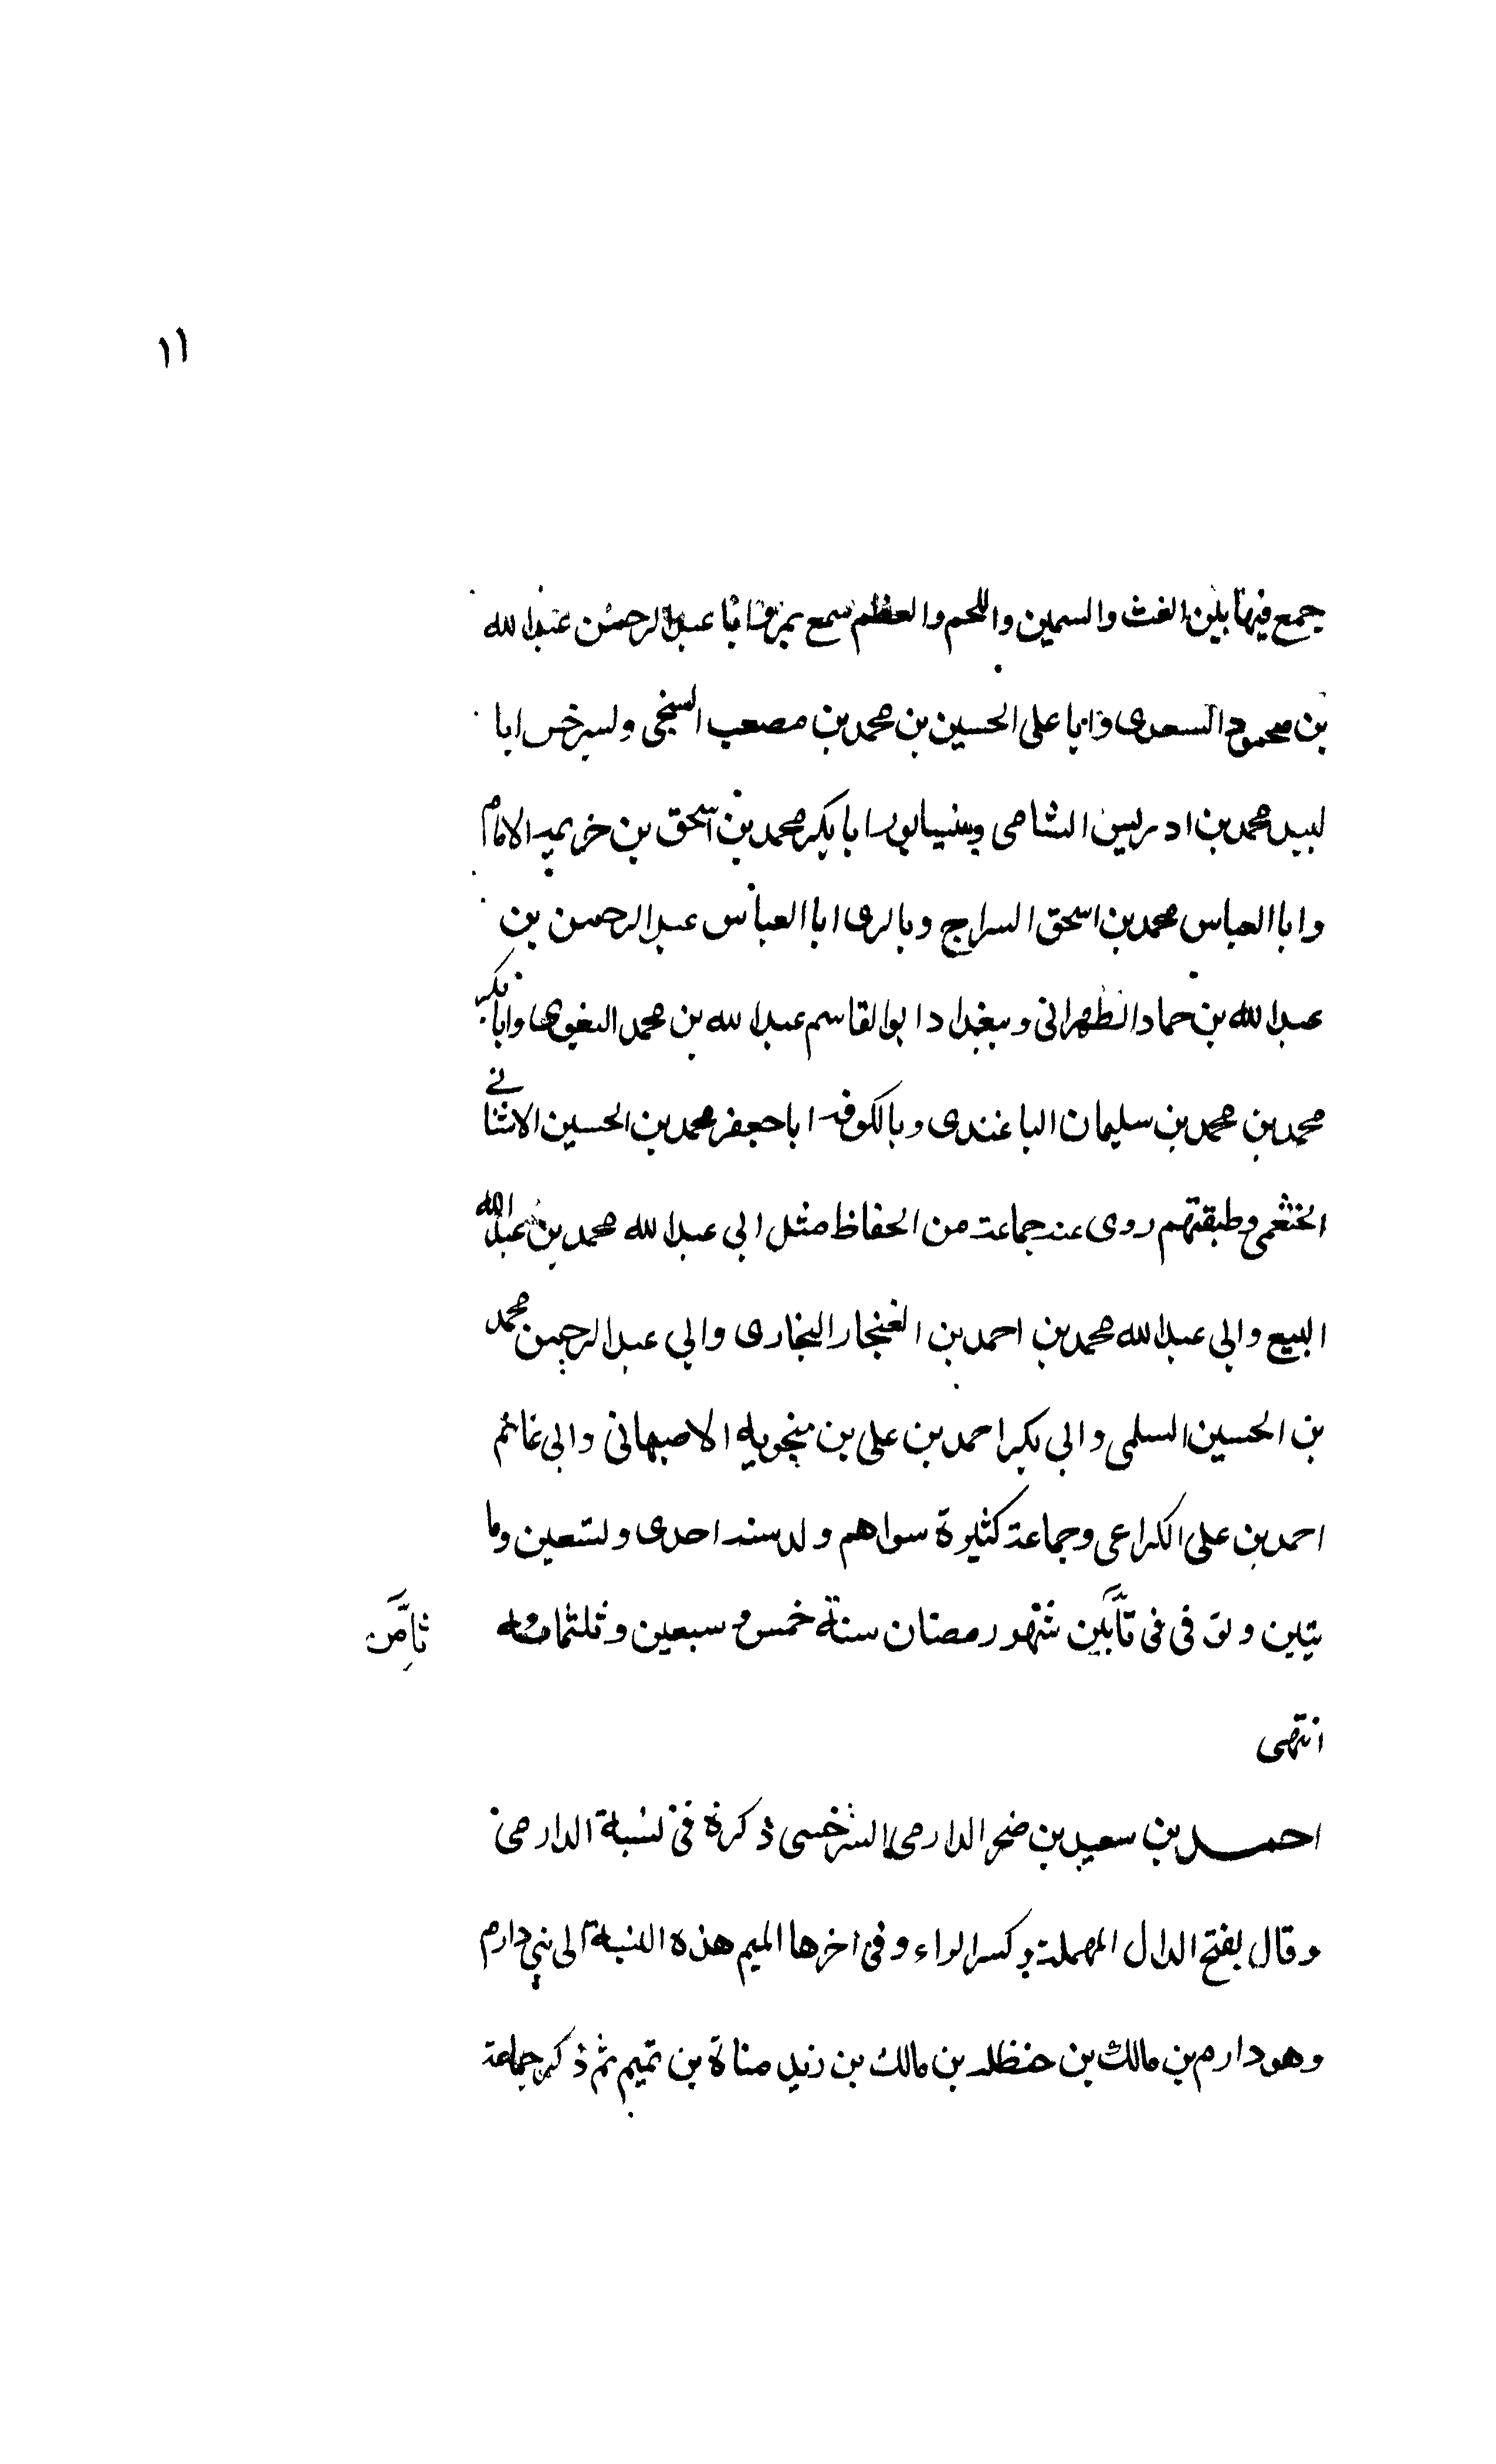 ١١
جمع فيها بين الغث والسمين واللحم والعظم سمع بمرو ابا عبد الرحمن عبد الله
بن محمود السعدى وابا على الحسين بن محمد بن مصعب السنجى ولسرخس ابا
لبيد محمد بن ادريس الشامى وبنيسابور ابا بكر محمد بن اسحق بن خزيمه الامام
وابا العباس محمد بن اسحق السراج وبالرى ابا العباس عبد الرحمن بن
عبد الله بن حماد الطهرانى وببغداد ابو القاسم عبد الله بن محمد البغوى وابا بكر
محمد بن محمد بن سليمان الباغندى وبالكوفه ابا جعفر محمد بن الحسين الاشنانے
الخثعمى وطبقتهم روى عنه جماعة من الحفاظ مثل ابى عبد الله محمد بن عبد الله
البيع وابى عبد الله محمد بن احمد بن الغنجار البخارى وابى عبد الرحمن محمد
بن الحسين السلمى وابى بكر احمد بن على بن منجويه الاصبهانى وابى غانم
احمد بن على الكراعى وجماعة كثيرة سواهم ولد سنه احدى وتسعين وما
يتين وتوفى فى شهر رمضان سنة خمس وسبعين وثلثمائه
ثامن
انتهى
احمد بن سعيد بن صخر الدارمى السرخسى ذكره فى نسبة الدارمى
وقال بفتح الدال المهملة وكسر الراء وفى اخرها الميم هذه النسبة الى بنى دارم
وهو دارم بن مالك بن حنظله بن مالك بن زيد مناة بن تميم ثم ذكر جماعة